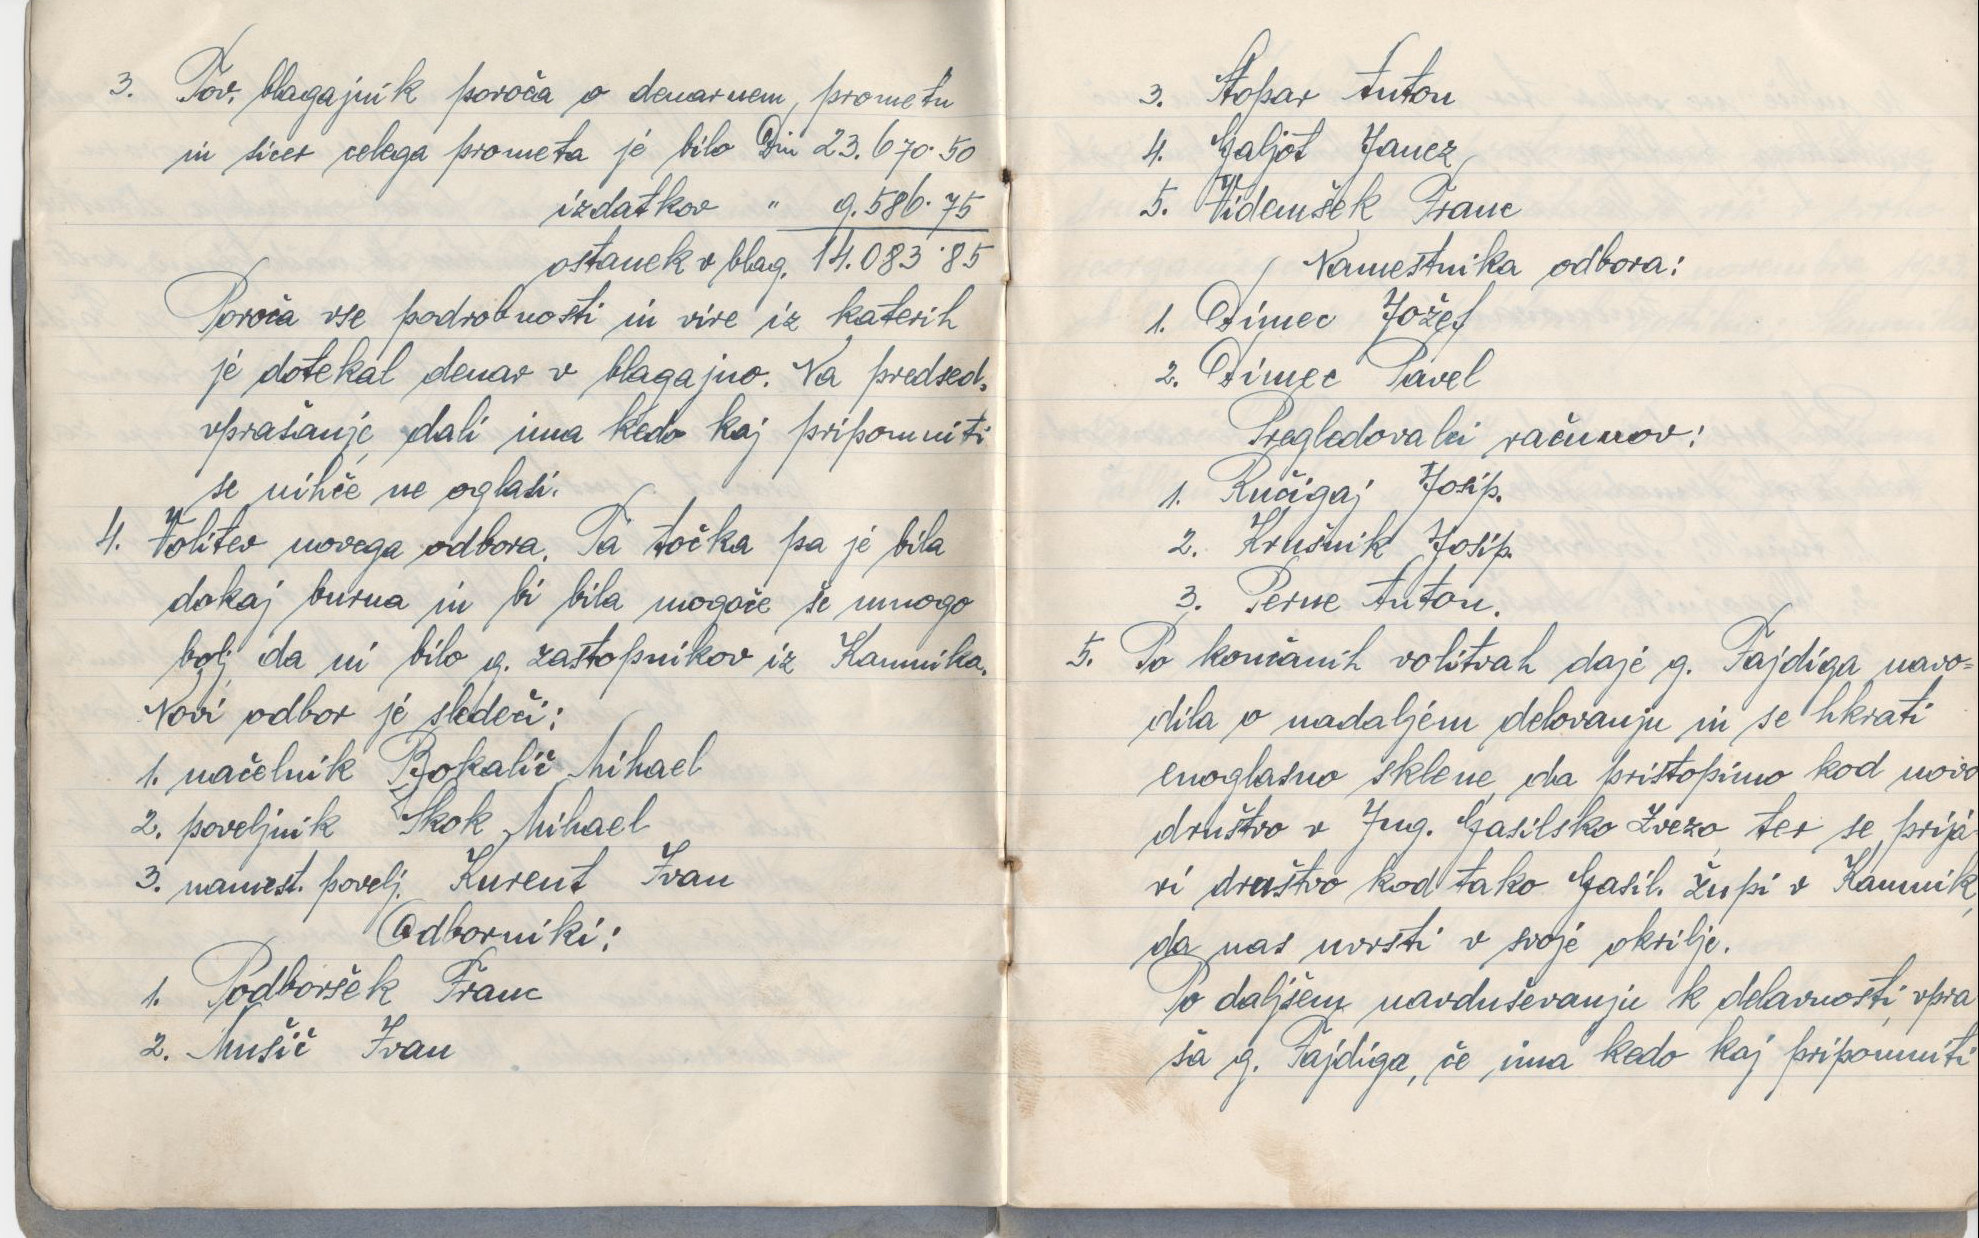 3. Tov. blagajnik poroča o denarnem prometu
in sicer celega prometa je bilo Din 23.670·50
izdatkov " 9.586·75
ostanek v blag. 14.083·85
Poroča vse podrobnosti in vire iz katerih
je dotekal denar v blagajno. Na predsed.
vprašanje, dali ima kedo kaj pripomniti
se nihče ne oglasi.
4. Volitev novega odbora. Ta točka pa je bila
dokaj burna in bi bila mogoče še mnogo
bolj, da ni bilo g. zastopnikov iz Kamnika.
Novi odbor je sledeči:
1. načelnik Bokalič Mihael
2. poveljnik Skok Mihael
3. namest. povelj. Kurent Ivan
Odborniki:
1. Podboršek Franc
2. Mušič Ivan
3. Stopar Anton
4. Galjot Janez
5. Videmšek Franc
Namestnika odbora:
1. Dimec Jožef
2. Dimec Pavel
Pregledovalci računov:
1. Ručigaj Josip.
2. Krušnik Josip.
3. Perne Anton.
5. Po končanih volitvah daje g. Fajdiga navo=
dila o nadaljem delovanju in se hkrati
enoglasno sklene, da pristopimo kod novo
društvo v Jug. Gasilsko Zvezo, ter se prija
vi društvo kod tako Gasil. župi v Kamnik,
da nas uvrsti v svoje okrilje.
Po daljšem navduševanju k delavnosti, vpra
ša g. Fajdiga, če ima kedo kaj pripomniti